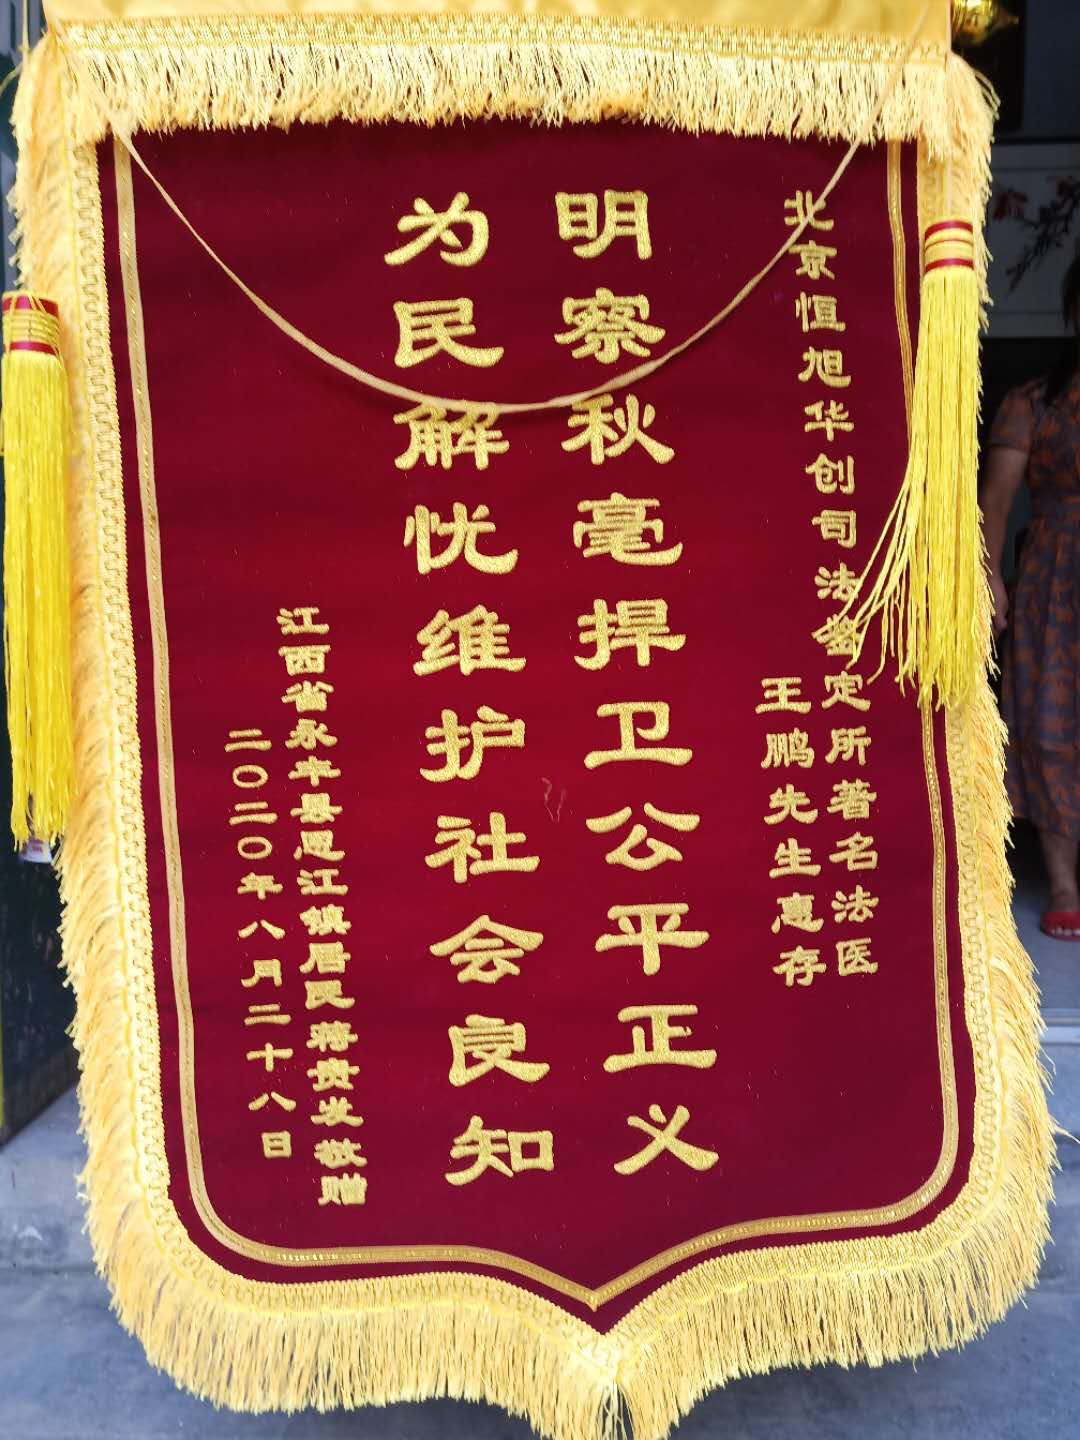 北京恒旭华创司法鉴定所著名法医
王鹏先生惠存
明察秋毫捍卫公平正义
为民解忧维护社会良知
江西省永丰县恩江镇居民蒋贵发敬赠
二〇二〇年八月二十八日